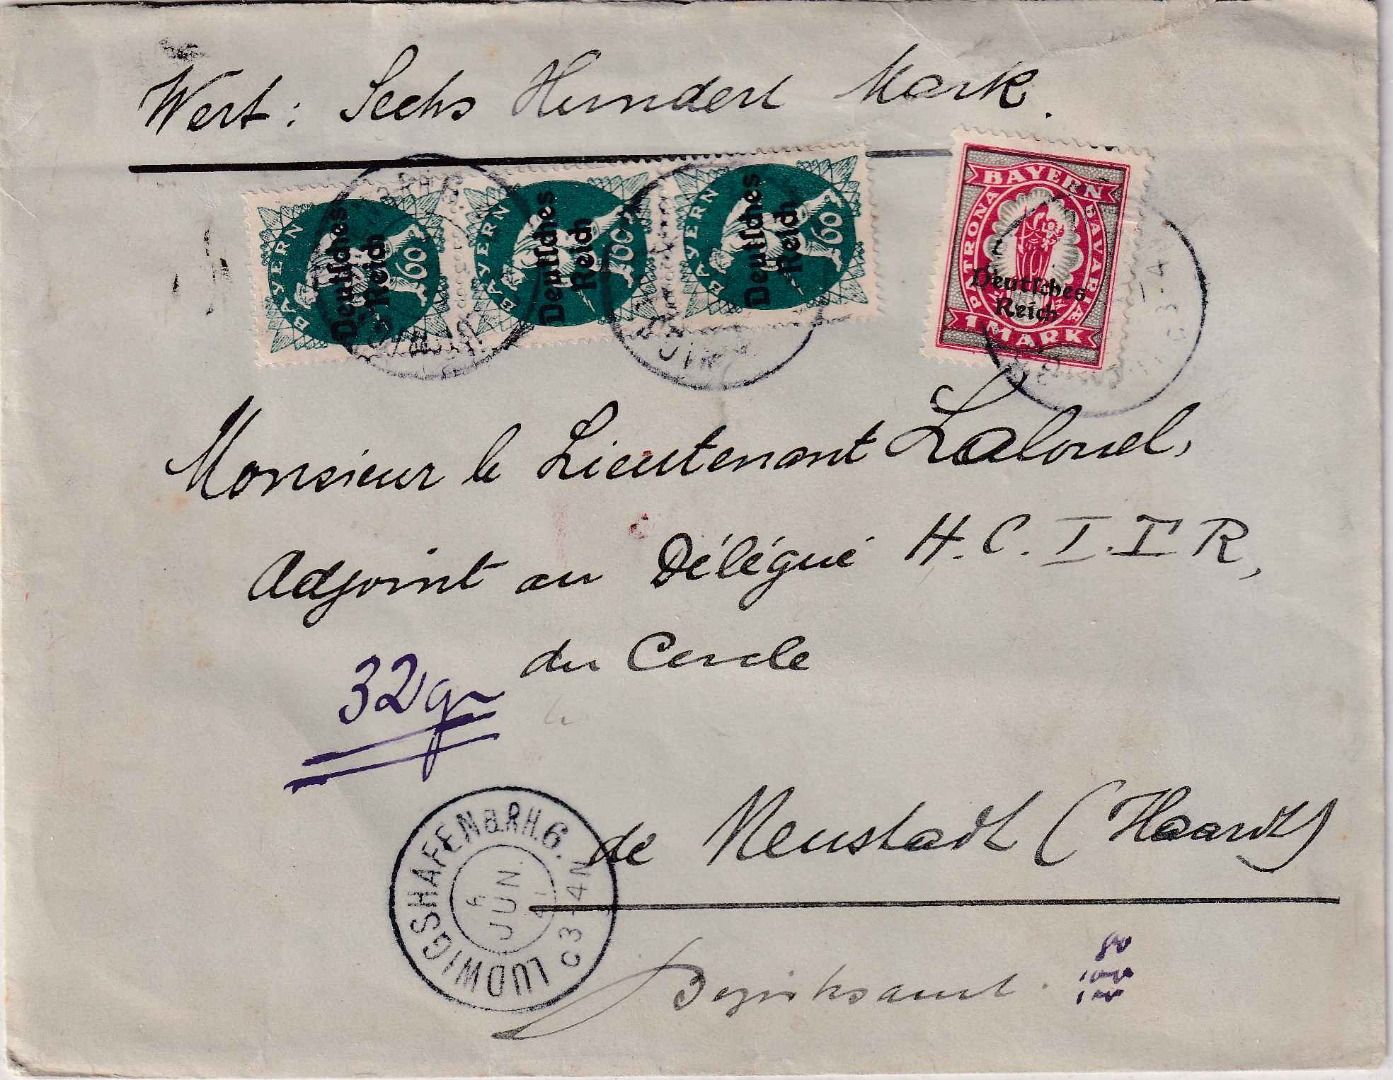 Wert: Sechs Hundert Mark.
BAYERN 60 Deutsches Reich
BAYERN 60 Deutsches Reich
BAYERN 60 Deutsches Reich
BAYERN PATRONA BAVARIÆ 1 MARK Deutsches Reich
Monsieur le Lieutenant Lalouel,
Adjoint au Délégué H.C.I.T.R,
du Cercle
32 gr
de Neustadt (Haardt)
LUDWIGSHAFEN a.RH. 6.
6 JUN
3-4 N
Bezirksamt.
80